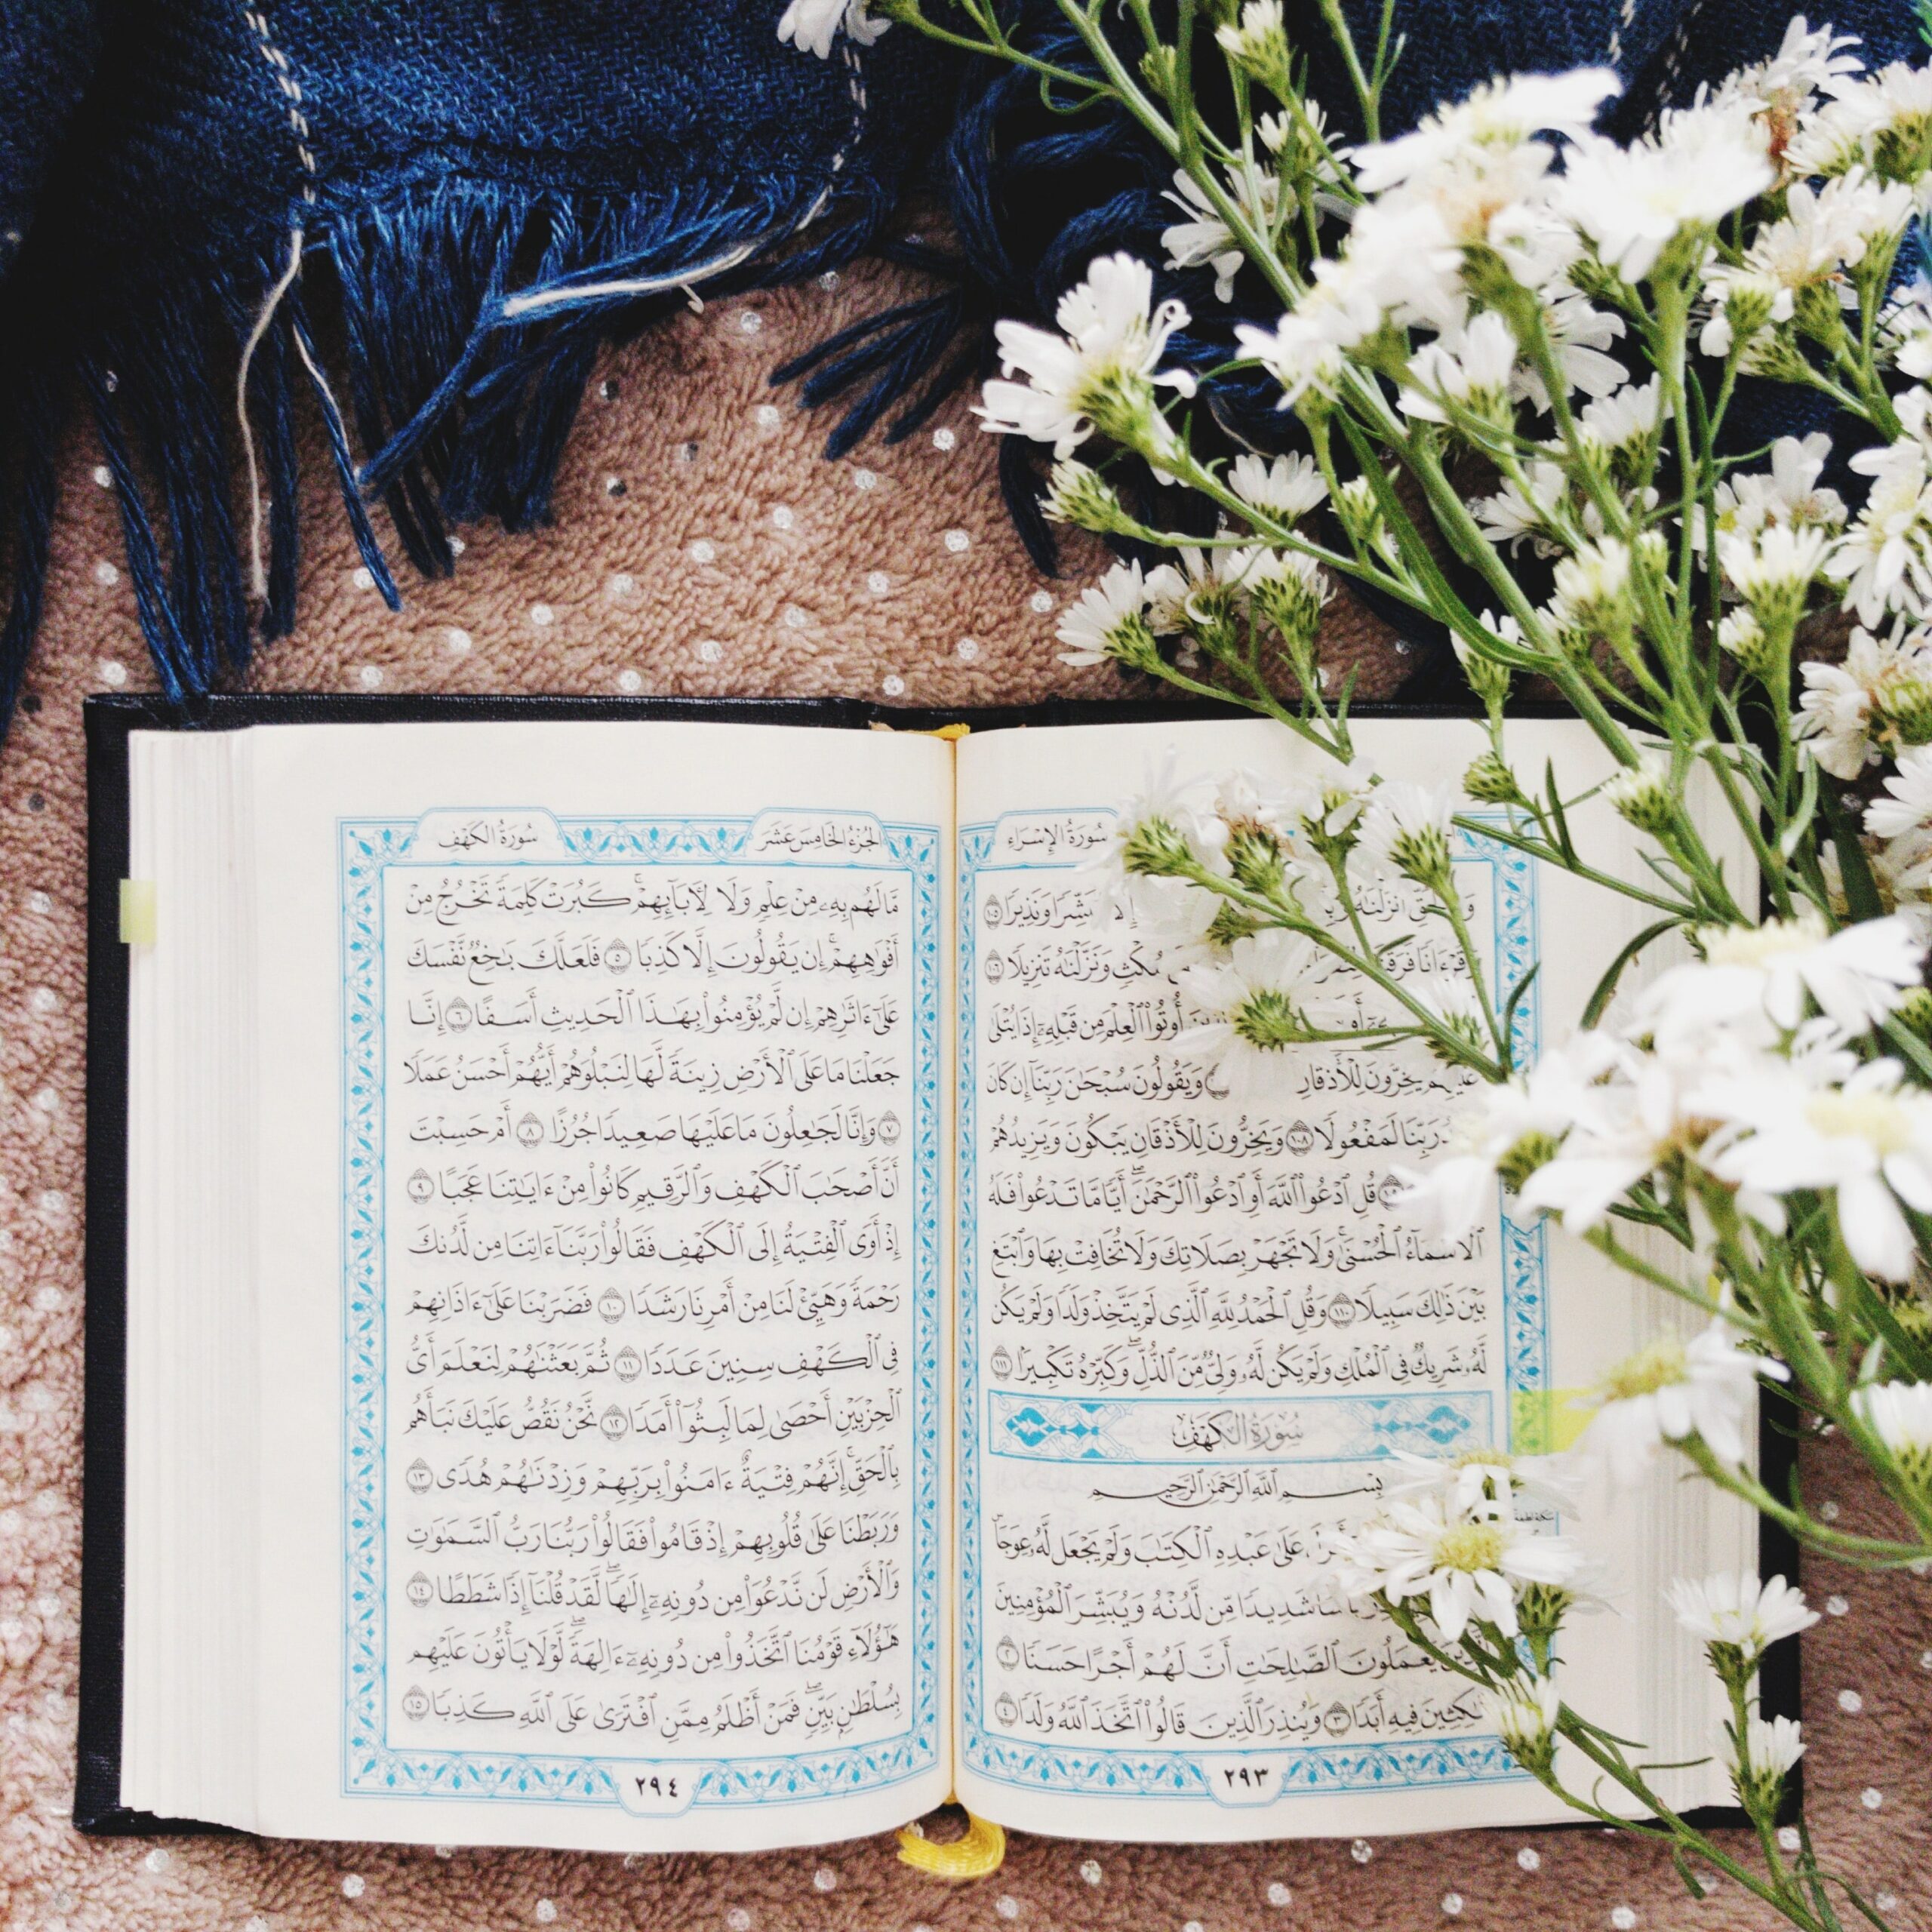 سُورَةُ الإِسْرَاءِ
وَ حَقِّ أَنزَلْنَٰهُ وَبِ إِلَّا مُبَشِّرًا وَنَذِيرًا ١٠٥
وَقُرْءَانًا فَرَقْنَٰهُ مُكْثٍ وَنَزَّلْنَٰهُ تَنزِيلًا ١٠٦
أُوتُوا۟ ٱلْعِلْمَ مِن قَبْلِهِۦٓ إِذَا يُتْلَىٰ
عَلَيْهِمْ يَخِرُّونَ لِلْأَذْقَانِ وَيَقُولُونَ سُبْحَٰنَ رَبِّنَآ إِن كَانَ
وَعْدُ رَبِّنَا لَمَفْعُولًا ١٠٨ وَيَخِرُّونَ لِلْأَذْقَانِ يَبْكُونَ وَيَزِيدُهُمْ
قُلِ ٱدْعُوا۟ ٱللَّهَ أَوِ ٱدْعُوا۟ ٱلرَّحْمَٰنَ ۖ أَيًّا مَّا تَدْعُوا۟ فَلَهُ
ٱلْأَسْمَآءُ ٱلْحُسْنَىٰ ۚ وَلَا تَجْهَرْ بِصَلَاتِكَ وَلَا تُخَافِتْ بِهَا وَٱبْتَغِ
بَيْنَ ذَٰلِكَ سَبِيلًا ١١٠ وَقُلِ ٱلْحَمْدُ لِلَّهِ ٱلَّذِى لَمْ يَتَّخِذْ وَلَدًا وَلَمْ يَكُن
لَّهُۥ شَرِيكٌ فِى ٱلْمُلْكِ وَلَمْ يَكُن لَّهُۥ وَلِىٌّ مِّنَ ٱلذُّلِّ ۖ وَكَبِّرْهُ تَكْبِيرًۢا ١١١
سُورَةُ الكَهْفِ
بِسْمِ ٱللَّهِ ٱلرَّحْمَٰنِ ٱلرَّحِيمِ
عَلَىٰ عَبْدِهِ ٱلْكِتَٰبَ وَلَمْ يَجْعَل لَّهُۥ عِوَجَا ۜ
بَأْسًا شَدِيدًا مِّن لَّدُنْهُ وَيُبَشِّرَ ٱلْمُؤْمِنِينَ
ٱلَّذِينَ يَعْمَلُونَ ٱلصَّٰلِحَٰتِ أَنَّ لَهُمْ أَجْرًا حَسَنًا ٢
مَّٰكِثِينَ فِيهِ أَبَدًا ٣ وَيُنذِرَ ٱلَّذِينَ قَالُوا۟ ٱتَّخَذَ ٱللَّهُ وَلَدًا ٤
٢٩٣
الجُزْءُ الخَامِسَ عَشَرَ سُورَةُ الكَهْفِ
مَّا لَهُم بِهِۦ مِنْ عِلْمٍ وَلَا لِأَبَآئِهِمْ ۚ كَبُرَتْ كَلِمَةً تَخْرُجُ مِنْ
أَفْوَٰهِهِمْ ۚ إِن يَقُولُونَ إِلَّا كَذِبًا ٥ فَلَعَلَّكَ بَٰخِعٌ نَّفْسَكَ
عَلَىٰٓ ءَاثَٰرِهِمْ إِن لَّمْ يُؤْمِنُوا۟ بِهَٰذَا ٱلْحَدِيثِ أَسَفًا ٦ إِنَّا
جَعَلْنَا مَا عَلَى ٱلْأَرْضِ زِينَةً لَّهَا لِنَبْلُوَهُمْ أَيُّهُمْ أَحْسَنُ عَمَلًا
٧ وَإِنَّا لَجَٰعِلُونَ مَا عَلَيْهَا صَعِيدًا جُرُزًا ٨ أَمْ حَسِبْتَ
أَنَّ أَصْحَٰبَ ٱلْكَهْفِ وَٱلرَّقِيمِ كَانُوا۟ مِنْ ءَايَٰتِنَا عَجَبًا ٩
إِذْ أَوَى ٱلْفِتْيَةُ إِلَى ٱلْكَهْفِ فَقَالُوا۟ رَبَّنَآ ءَاتِنَا مِن لَّدُنكَ
رَحْمَةً وَهَيِّئْ لَنَا مِنْ أَمْرِنَا رَشَدًا ١٠ فَضَرَبْنَا عَلَىٰٓ ءَاذَانِهِمْ
فِى ٱلْكَهْفِ سِنِينَ عَدَدًا ١١ ثُمَّ بَعَثْنَٰهُمْ لِنَعْلَمَ أَىُّ
ٱلْحِزْبَيْنِ أَحْصَىٰ لِمَا لَبِثُوٓا۟ أَمَدًا ١٢ نَّحْنُ نَقُصُّ عَلَيْكَ نَبَأَهُم
بِٱلْحَقِّ ۚ إِنَّهُمْ فِتْيَةٌ ءَامَنُوا۟ بِرَبِّهِمْ وَزِدْنَٰهُمْ هُدًى ١٣
وَرَبَطْنَا عَلَىٰ قُلُوبِهِمْ إِذْ قَامُوا۟ فَقَالُوا۟ رَبُّنَا رَبُّ ٱلسَّمَٰوَٰتِ
وَٱلْأَرْضِ لَن نَّدْعُوَا۟ مِن دُونِهِۦٓ إِلَٰهًا ۖ لَّقَدْ قُلْنَآ إِذًا شَطَطًا ١٤
هَٰٓؤُلَآءِ قَوْمُنَا ٱتَّخَذُوا۟ مِن دُونِهِۦٓ ءَالِهَةً ۖ لَّوْلَا يَأْتُونَ عَلَيْهِم
بِسُلْطَٰنٍۭ بَيِّنٍ ۖ فَمَنْ أَظْلَمُ مِمَّنِ ٱفْتَرَىٰ عَلَى ٱللَّهِ كَذِبًا ١٥
٢٩٤